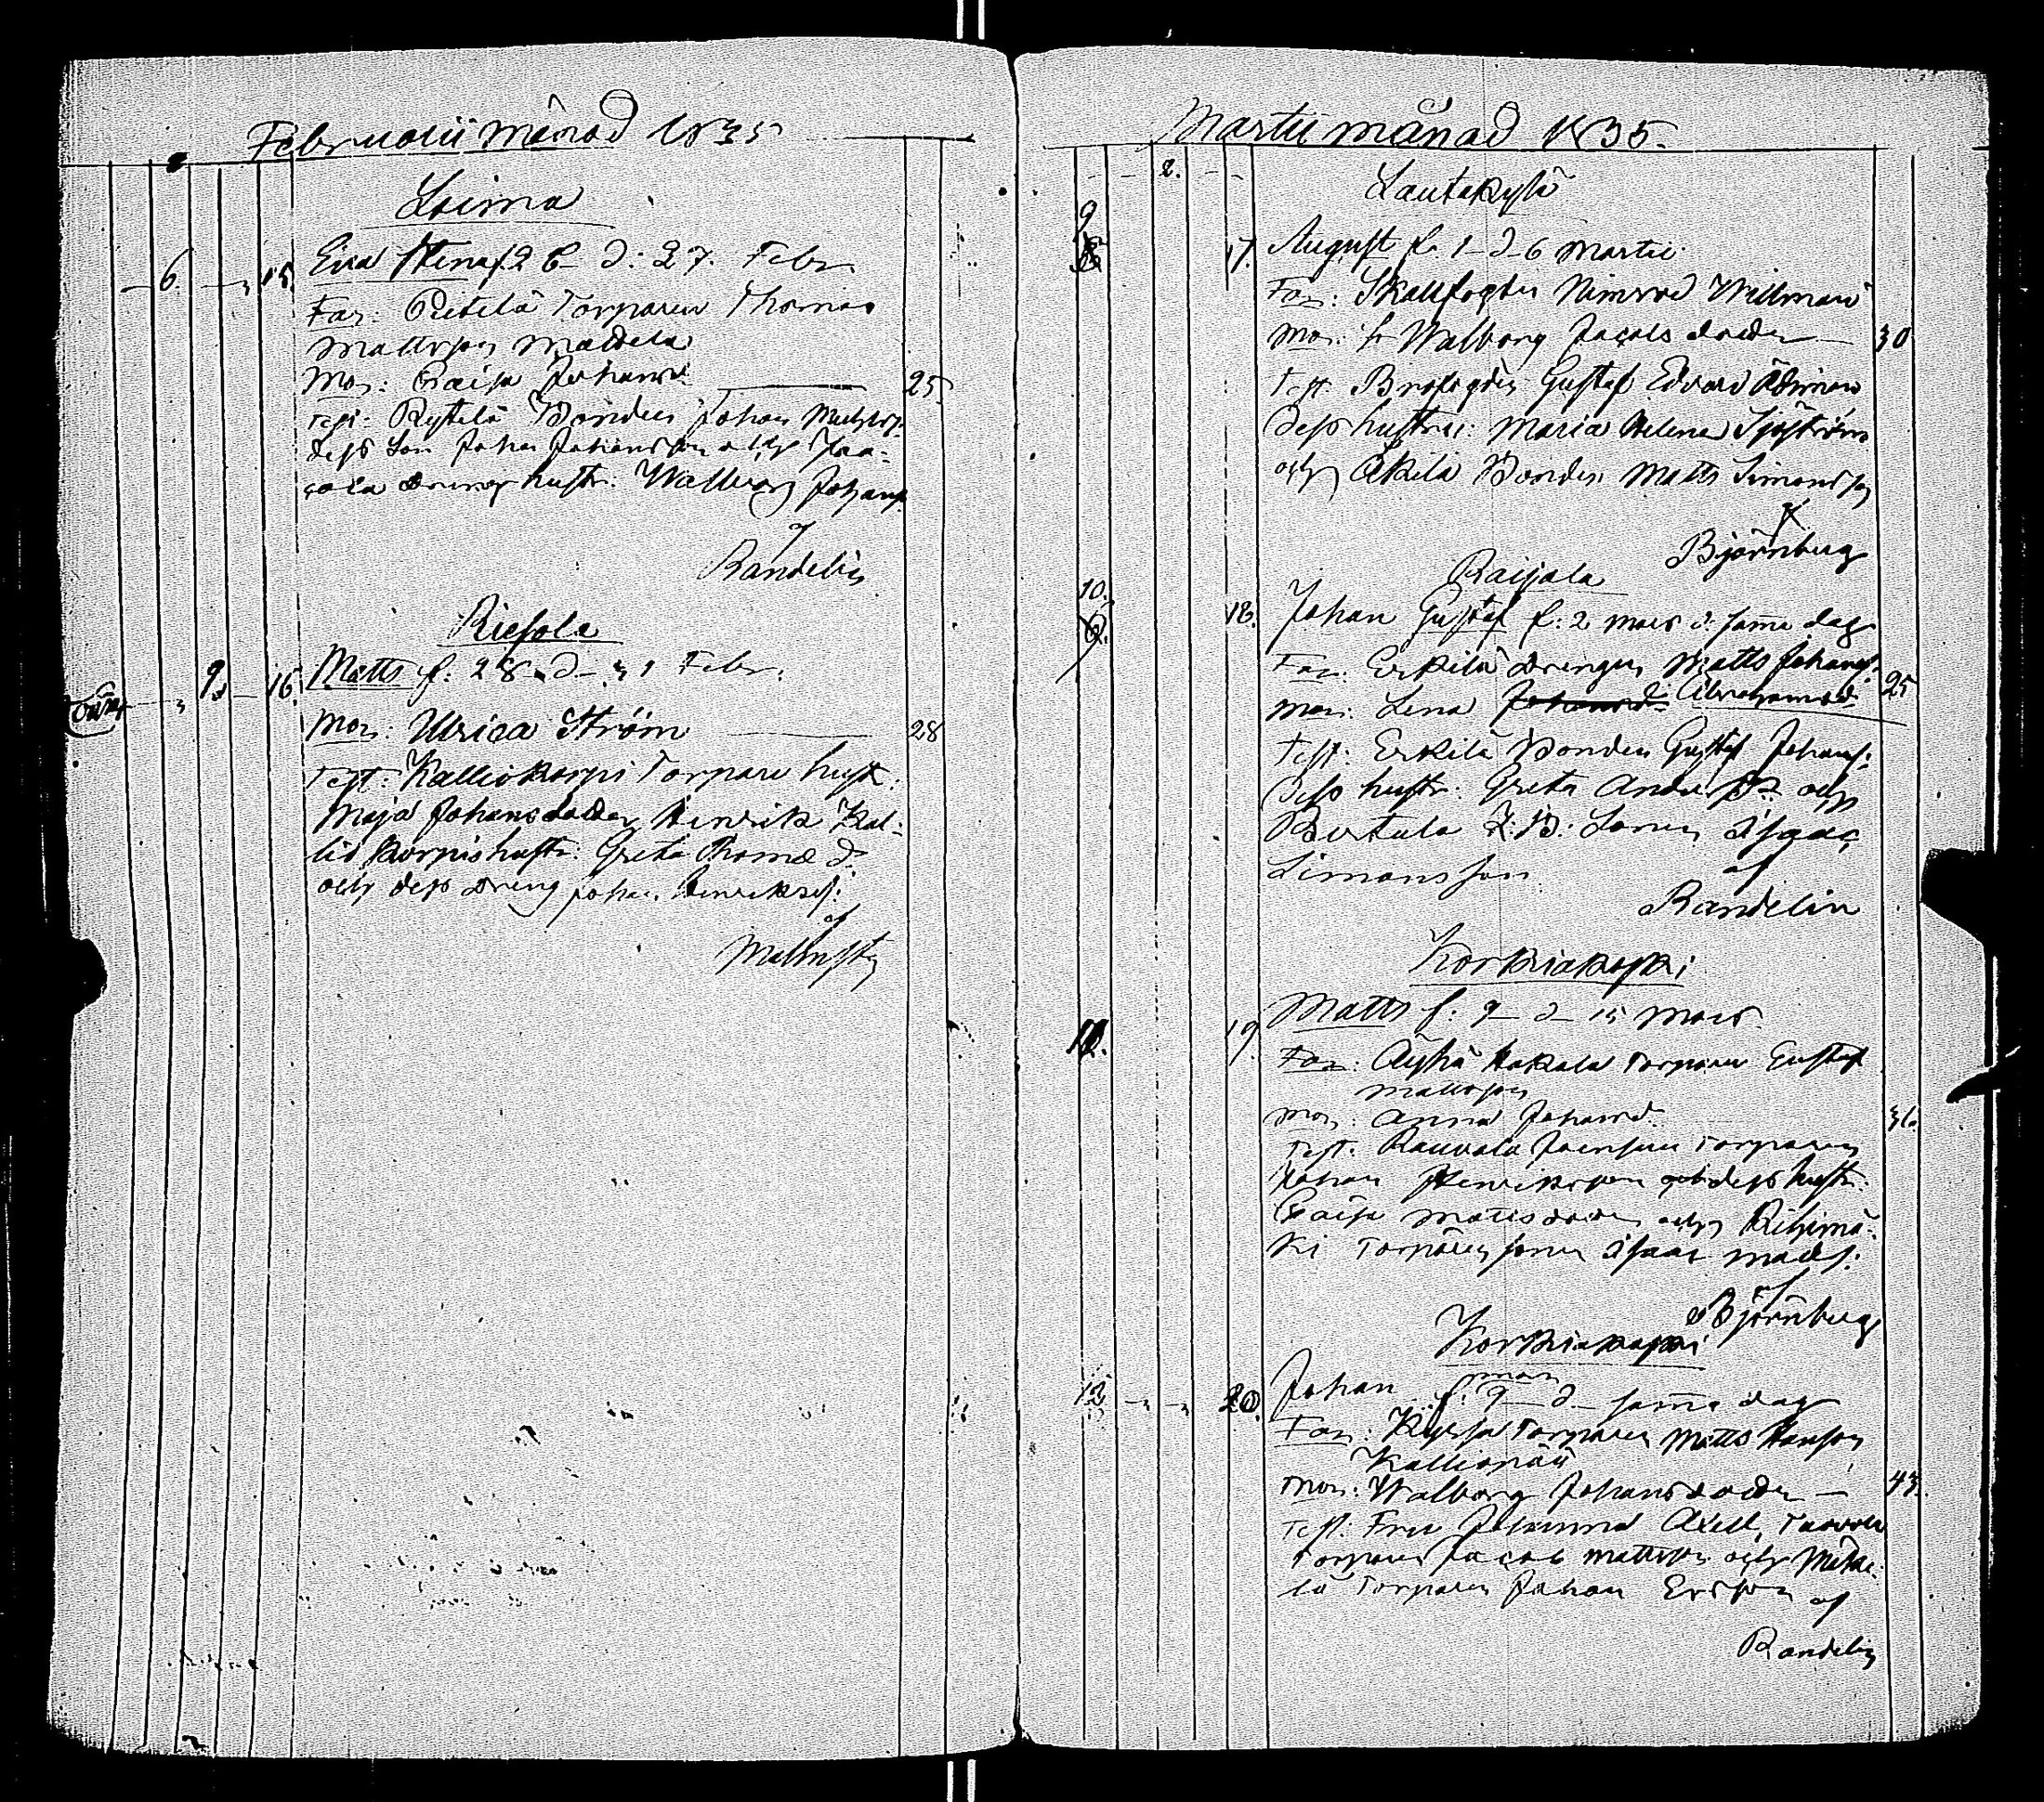 Februarii månad 1835
Loima
6. 15. Eva Stena f. 26 d: 27. Febr.
Far: Pietilä Torparen Thomas
Mattsson Mattila
Mor: Caisa Johansd. 25
Test: Bonden Johan
dess Son Johan Johansson och
dreng hustr: Walborg Johansd.
af
Randelin
Riesola
9. 16. Matts f. 28 d. 31 Febr.
Mor: Ulrica Ström 28
Test: Kalliokorpi Torpare hustr:
Maja Johansdotter Henrik Kal-
lio korpis hustr: Greta Thomæ d.
och dess Dreng Johan Henrikss:
af
Malmsten
Martii månad 1835.
2.
Lautakylä
9 17. August f. 1 d 6 Martii
Far: Skallfogden Nimrod Willman
Mor: h Walborg Jacobsdotter 30
Test: Brofogden Gustaf Edvard
Dess hustru: Maria Helena Sjöström
och Äkilä Bonden Matts Simonsson
af
Björnberg
Raijala
10. 18. Johan Gustaf f: 2 mars d. samma dag
Far: Erkilä Drengen Matts Johanss:
Mor: Lena Abrahamsd. 25
Test: Erkilä Bonden Gustaf Johanss:
Dess hustr: Greta Anders D. och
Bertula R: B: Sonen Isaac
Simonsson
af
Randelin
Korkiakoski
11. 19. Matts f: 9 d 15 Mars
Far: Äyhö Hakala Torparen Gustaf
Mattsson
Mor: Anna Johansd. 36.
Test: Rauvola Torparen
Johan Henriksson och dess hustr:
Caisa Mattsdotter och Riihimä-
ki Torpare sonen Isaac Matts:
af
Björnberg
Korkiakoski
12 20. Johan f: 9 mars d. samma dag
Far: Torparen Matts Hansson
Kallionpää
Mor: Walborg Johansdotter 43.
Test: Fru Johanna Axell,
Torparen Jacob Mattsson och
lä Torparen Johan Ersson
af
Randelin